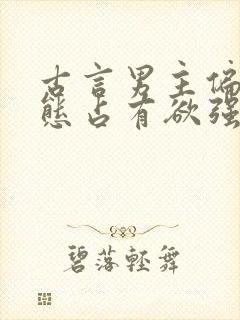 古言男主偏
态占有欲强
碧落轻舞